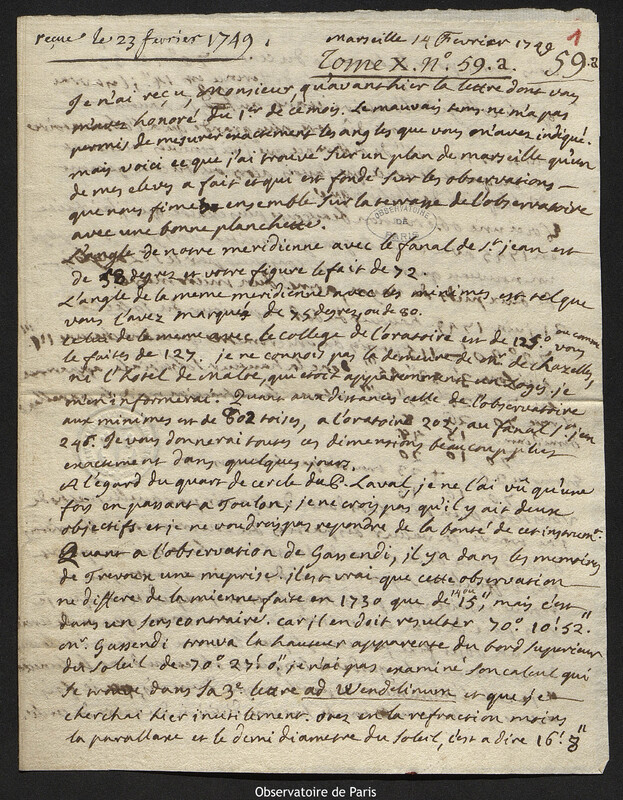 reçue le 23 fevrier 1749.
Marseille 14 Fevrier 1749
1
Tome X. n.º 59. a.
59.a
Je n'ai reçu, Monsieur, qu'avant hier la lettre dont vous
m'avez honoré du 1er de ce mois. Le mauvais tems ne m'a pas
permis de mesurer exactement les angles que vous m'avez indiqué.
mais voici ce que j'ai trouvé sur un plan de marseille qu'un
de mes eleves a fait et qui est fondé sur les observations
que nous fimes ensemble sur la terrasse de l'observatoire
avec une bonne planchette.
OBSERVATOIRE DE PARIS
L'angle de notre meridienne avec le fanal de St. jean est
de 58 degrez et votre figure le fait de 72.
L'angle de la meme meridienne avec les minimes est tel que
vous l'avez marqué de 75 degrez, ou de 80.
celui de la meme avec le college de l'oratoire est de 125º ou comme vous
le faites de 127. je ne connois pas la demeure de Mr. de chazelles,
ni l'hotel de malte, qui etoit apparemment un logis, je
m'en informerai. Quant aux distances celle de l'observatoire
aux minimes est de 802 toises, a l'oratoire 207, au fanal j'en
246. Je vous donnerai toutes ces dimensions beaucoup plus
exactement dans quelques jours.
A l'egard du quart de cercle du P. Laval, je ne l'ai vû qu'une
fois en passant a Toulon; je ne crois pas qu'il y ait deux
objectifs et je ne voudrois pas repondre de la bonté de cet instrumt.
Quant a l'observation de Gassendi, il y a dans les memoires
de Trevoux une meprise. il est vrai que cette observation
ne differe de la mienne faite en 1730 que de 14 ou 15", mais c'est
dans un sens contraire. car il en doit resulter 70º. 10'. 52".
mr. Gassendi trouva la hauteur apparente du bord superieur
du soleil de 70º 27' 0". je n'ai pas examiné son calcul qui
se trouve dans sa 3e lettre ad Wendelinum et que je
cherchai hier inutilement. otez en la refraction moins
la parallaxe et le demi diametre du soleil, c'est a dire 16' 8"
Observatoire de Paris